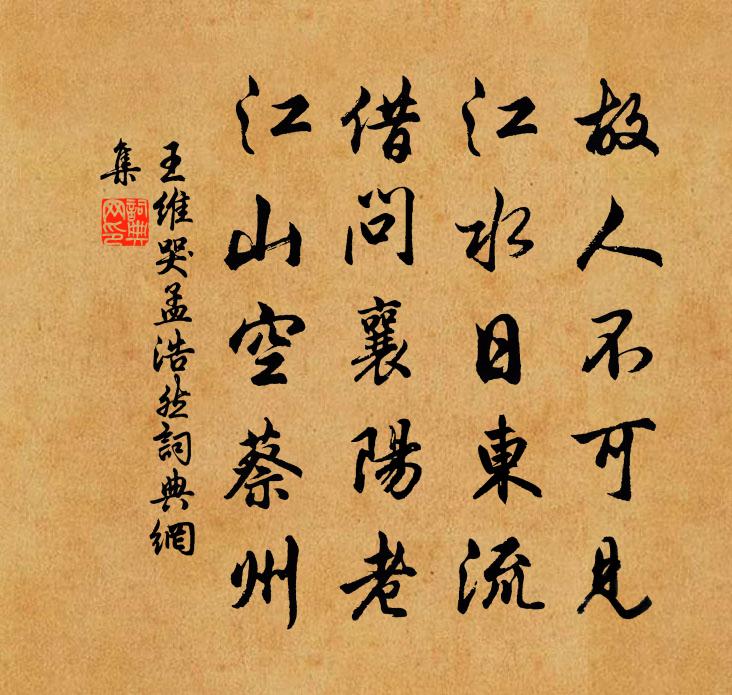 故人不可見
江水日東流
借問襄陽老
江山空蔡州
王維哭孟浩然詞典網
集
詞典
网印